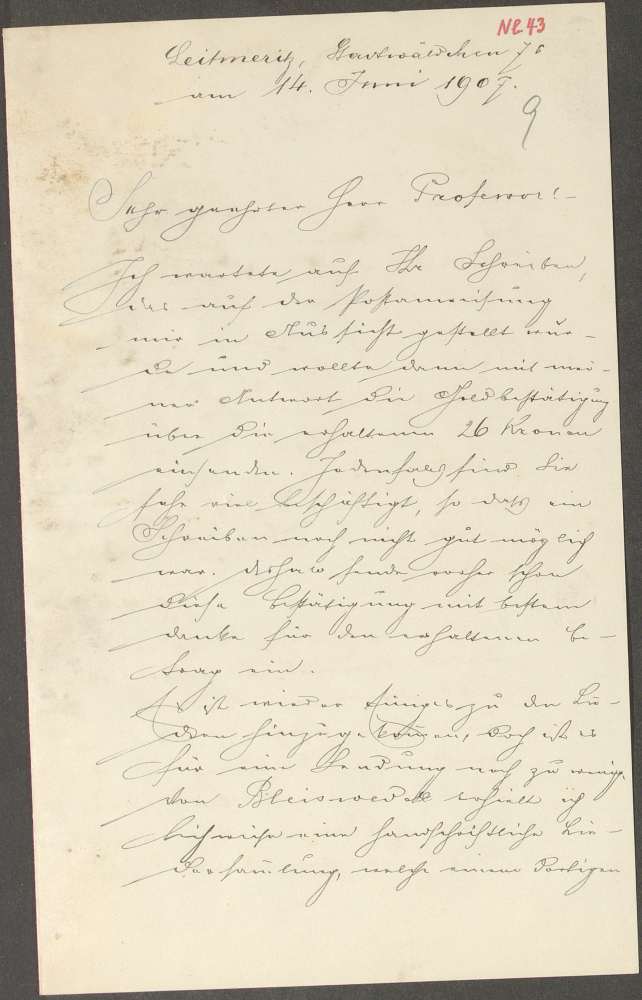 Nl. 43
Leitmeritz, Stadtwäldchen 78
am 14. Juni 1907.
9
Sehr geehrter Herr Professor! –
Ich wartete auf Ihr Schreiben,
das auf der Postanweisung
mir in Aussicht gestellt wur-
de und wollte dann mit mei-
ner Antwort die Geldbestätigung
über die erhaltenen 26 Kronen
einsenden. Jedenfalls sind Sie
sehr viel beschäftigt, so daß ein
Schreiben noch nicht gut möglich
war. Deshalb sende vorher schon
diese Bestätigung mit bestem
Danke für den erhaltenen Be-
trag ein.
Es ist wieder Einiges zu den Lie-
dern hinzugekom̄en, doch ist es
für eine Sendung noch zu wenig.
Von Bleiswedel erhielt ich
leihweise eine handschriftliche Lie-
dersam̄lung, welche einem dortigen